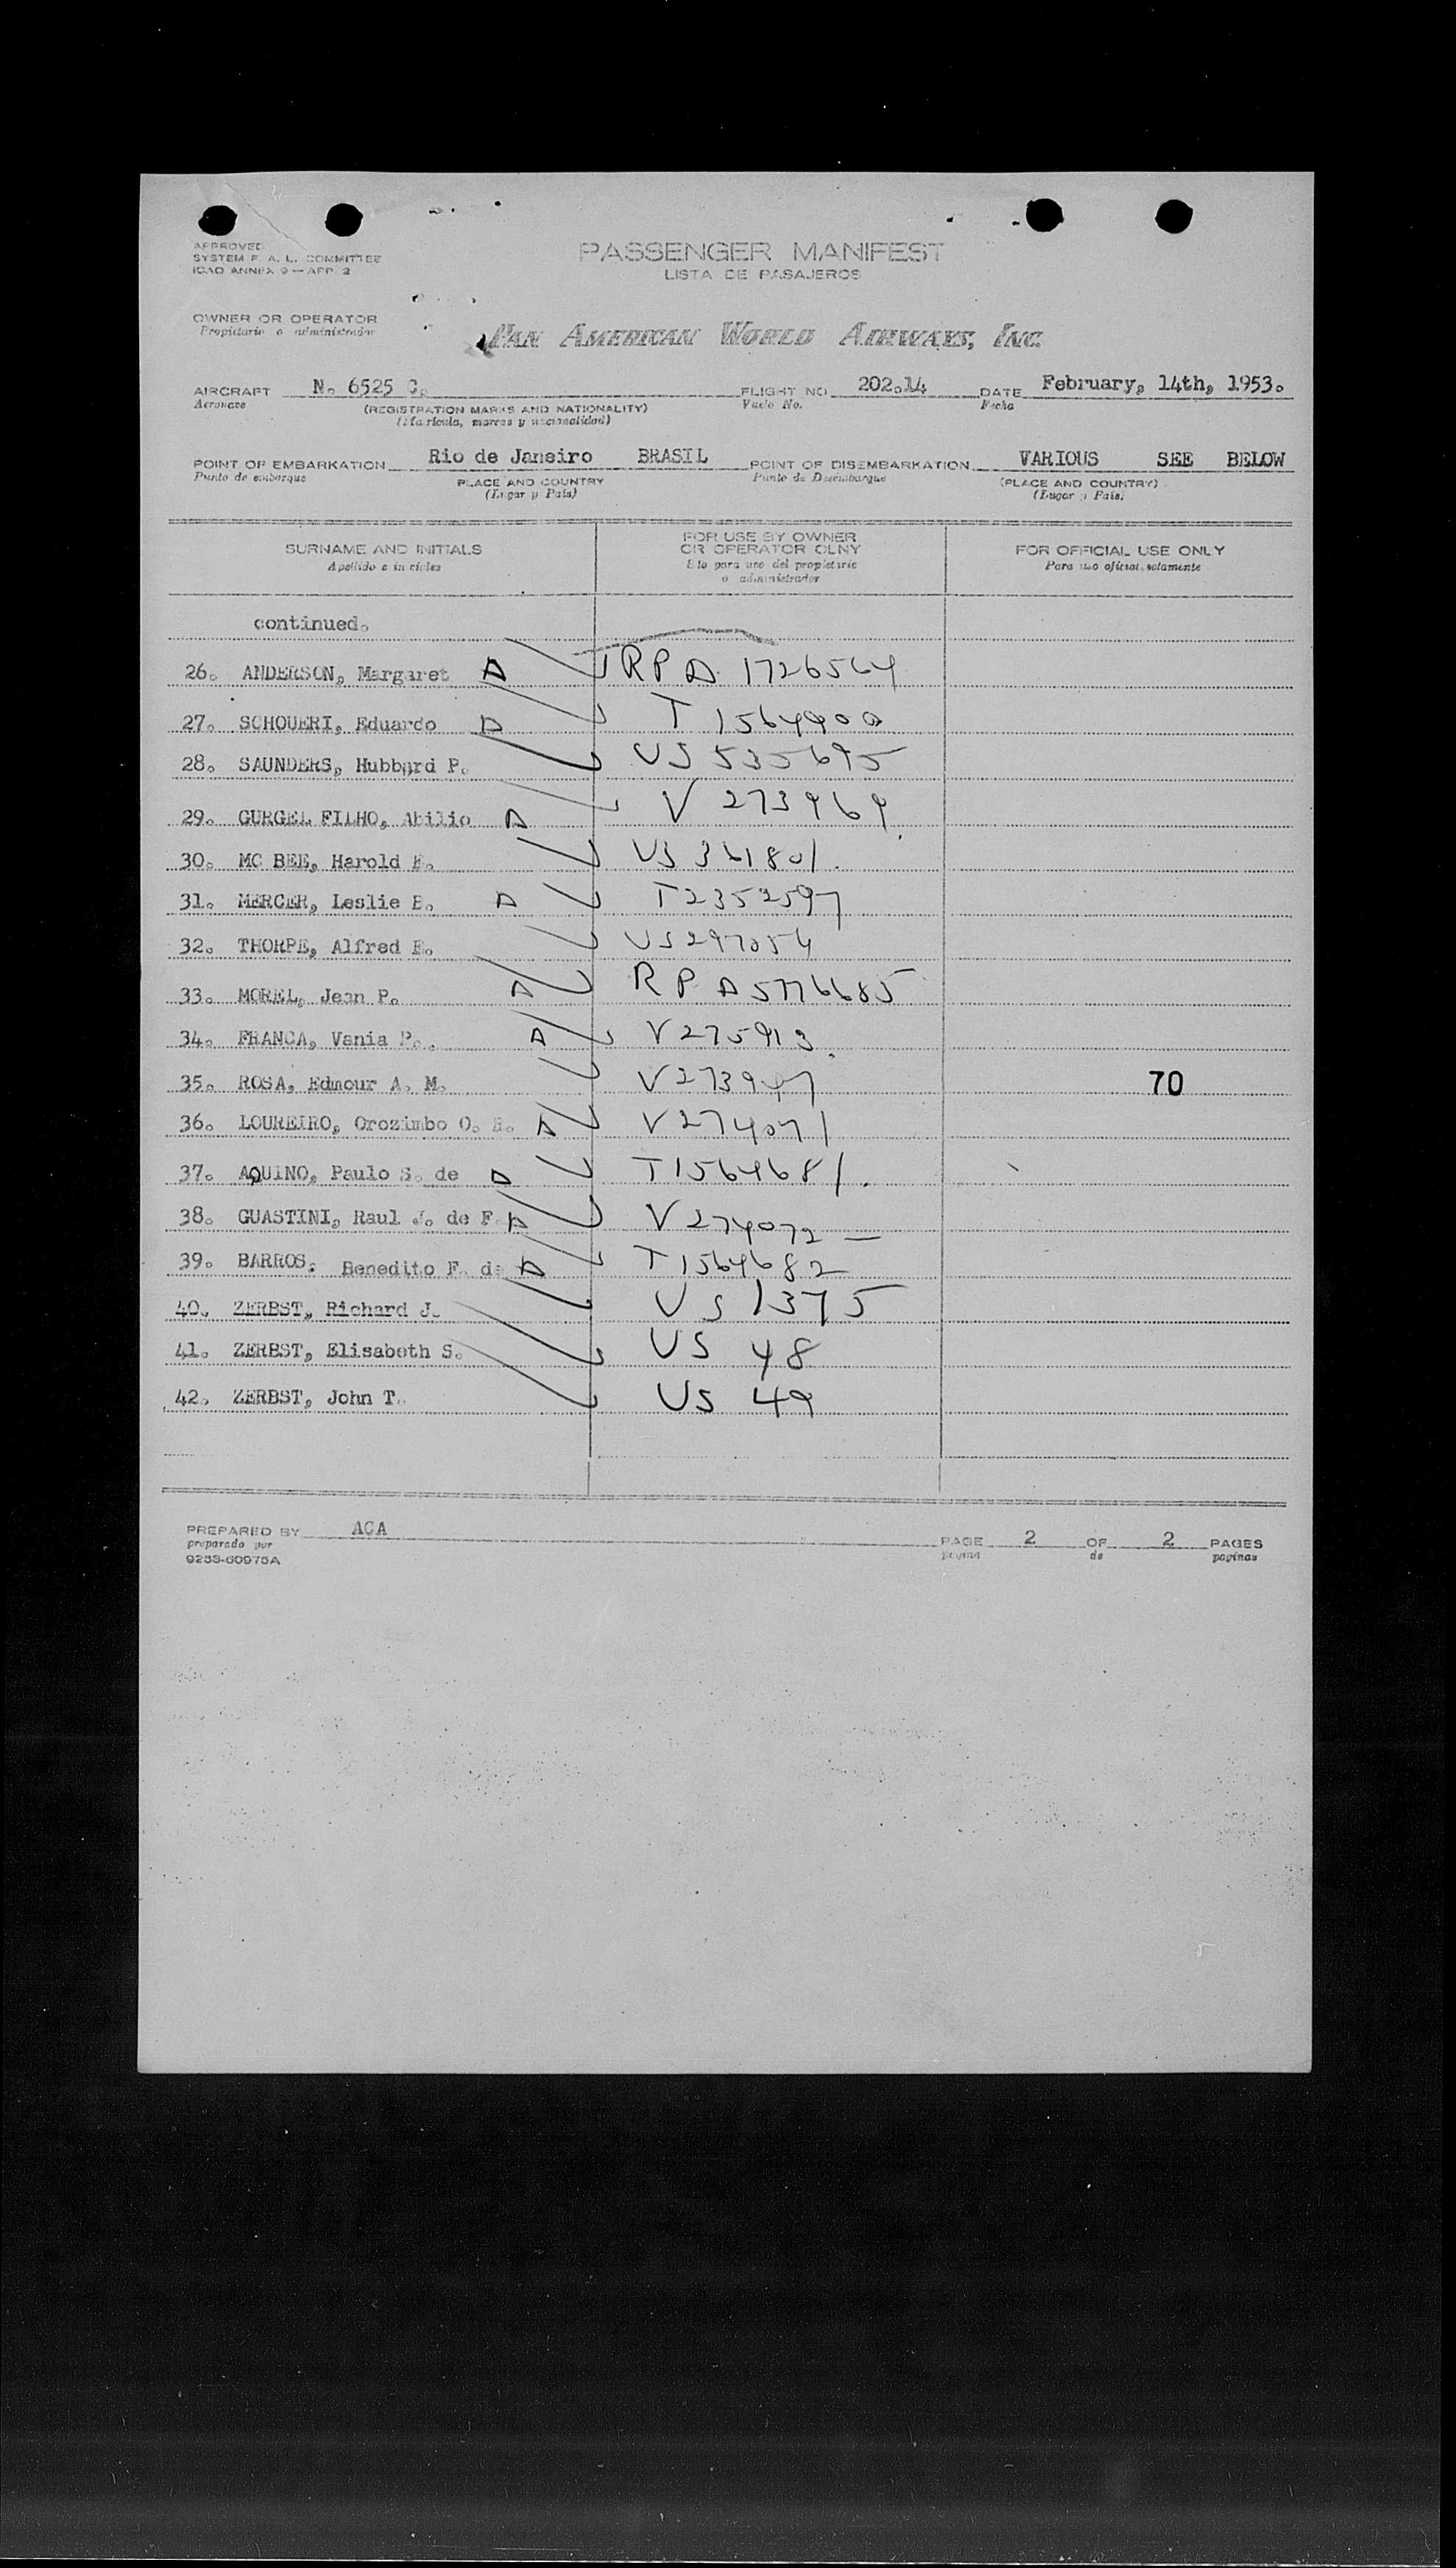 APPROVED
SYSTEM F. A. L. COMMITTEE
ICAO ANNEX 9 — APP. 2
PASSENGER MANIFEST
LISTA DE PASAJEROS
OWNER OR OPERATOR
Propietario o administrador
PAN AMERICAN WORLD AIRWAYS, INC.
AIRCRAFT N. 6525 C. FLIGHT NO. 202.14 DATE February, 14th, 1953.
Aeronave (REGISTRATION MARKS AND NATIONALITY) Vuelo No. Fecha
(Matricula, marcas y nacionalidad)
POINT OF EMBARKATION Rio de Janeiro BRASIL POINT OF DISEMBARKATION VARIOUS SEE BELOW
Punto de embarque PLACE AND COUNTRY Punto de Desembarque (PLACE AND COUNTRY)
(Lugar y Pais) (Lugar y Pais)
SURNAME AND INITIALS FOR USE BY OWNER OR OPERATOR OLNY FOR OFFICIAL USE ONLY
Apellido e iniciales para uso del propietario o administrador Para uso oficial solamente
continued.
26. ANDERSON, Margaret A RPA 1726564
27. SCHOUERI, Eduardo A T 1564900
28. SAUNDERS, Hubbard P. US 535695
29. GURGEL FILHO, Abilio A V 273969
30. MC BEE, Harold E. US 361801
31. MERCER, Leslie B. A T2352597
32. THORPE, Alfred E. US297054
33. MOREL, Jean P. A RPA5776685
34. FRANCA, Vania P. A V275913
35. ROSA, Edmour A. M. V273947 70
36. LOUREIRO, Orozimbo O. A V274071
37. AQUINO, Paulo S. de A T1564681
38. GUASTINI, Raul J. de F. A V274072
39. BARROS, Benedito F. de A T1564682
40. ZERBST, Richard J. US 1375
41. ZERBST, Elisabeth S. US 48
42. ZERBST, John T. US 49
PREPARED BY ACA PAGE 2 OF 2 PAGES
preparado por pagina de paginas
9233-60975A